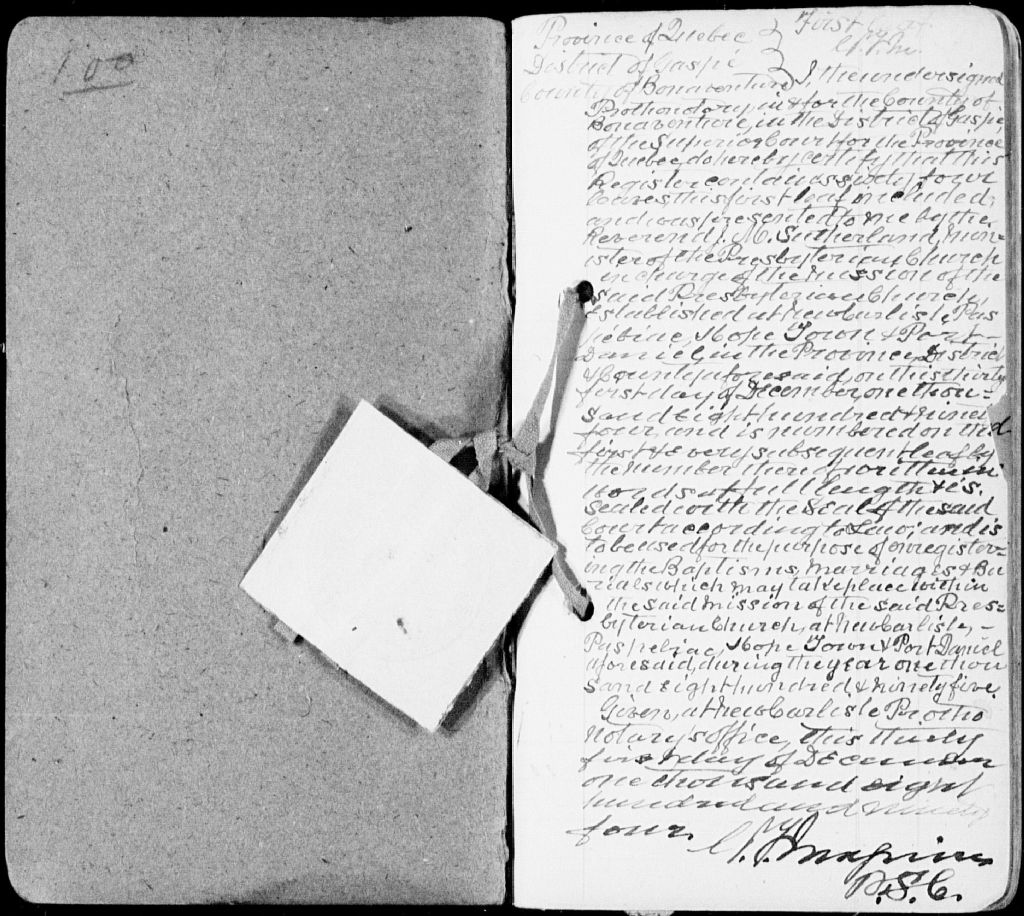 100
Province of Quebec } First leaf
District of Gaspé
County of Bonaventure } I, the undersigned
Prothonotary, in & for the County of
Bonaventure, in the District of Gaspé
of the Superior Court for the Province
of Quebec, do hereby certify that this
Register contains sixty four
leaves this first leaf included;
and was presented to me by the
Reverend J. M. Sutherland, Min=
ister of the Presbyterian Church
in charge of the Mission of the
said Presbyterian Church,
established at New Carlisle, Pas
pébiac, Hope Town & Port-
Daniel, in the Province, District
& County aforesaid, on this thirty
first day of December, one thou=
sand eight hundred & ninety
four, and is numbered on the
first & every subsequent leaf by
the number thereof written in
words at full length & is,
sealed with the Seal of the said
Court according to Law; and is
to be used for the purpose of enregister=
ing the Baptisms, Marriages & Bu
rials which may take place within
the said Mission of the said Pres=
byterian Church, at New Carlisle, -
Paspebiac, Hope Town & Port Daniel
aforesaid, during the year one thou
sand eight hundred & ninety five.
Given, at New Carlisle Protho
notary's office, this thirty
first day of December
one thousand eight
hundred and ninety
four.
P.S.C.